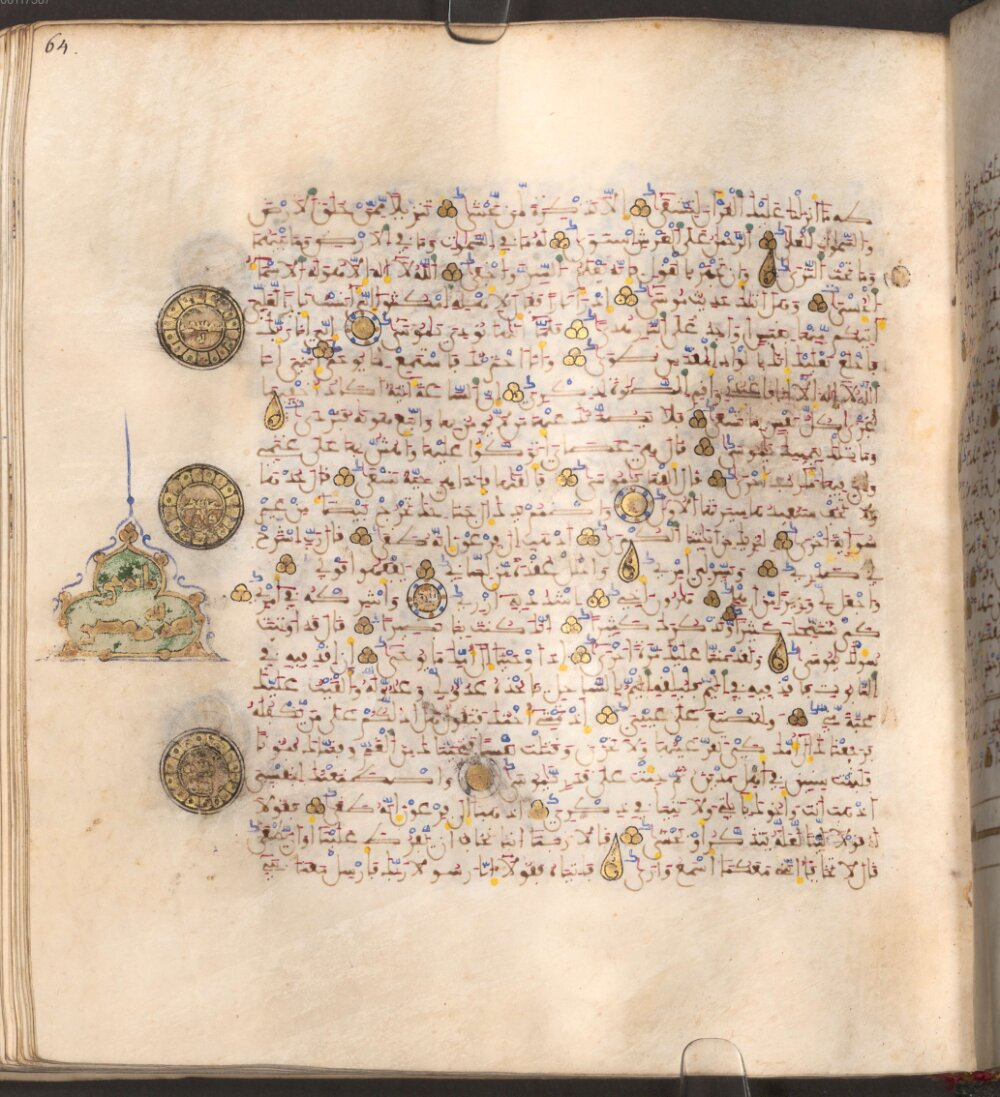 64.
طه ما أنزلنا عليك القرءان لتشقى إلا تذكرة لمن يخشى تنزيلا ممن خلق الارض
والسموات العلى الرحمن على العرش استوى له ما في السموات وما في الارض وما بينهما
وما تحت الثرى وإن تجهر بالقول فإنه يعلم السر وأخفى الله لا إله إلا هو له الاسماء
الحسنى وهل أتيك حديث موسى إذ رءا نارا فقال لأهله امكثوا إني ءانست نارا لعلي
ءاتيكم منها بقبس أو أجد على النار هدى فلما أتيها نودي يموسى إني أنا ربك
فاخلع نعليك إنك بالواد المقدس طوى وأنا اخترتك فاستمع لما يوحى إنني أنا
الله لا إله إلا أنا فاعبدني وأقم الصلوة لذكري إن الساعة ءاتية أكاد أخفيها
لتجزى كل نفس بما تسعى فلا يصدنك عنها من لا يومن بها واتبع هويه فتردى
وما تلك بيمينك يموسى قال هي عصاي أتوكؤا عليها وأهش بها على غنمي
ولي فيها مئارب أخرى قال ألقها يموسى فألقيها فإذا هي حية تسعى قال خذها
ولا تخف سنعيدها سيرتها الاولى واضمم يدك إلى جناحك تخرج بيضاء من غير
سوء ءاية أخرى لنريك من ءايتنا الكبرى اذهب إلى فرعون إنه طغى قال رب اشرح
لي صدري ويسر لي أمري واحلل عقدة من لساني يفقهوا قولي
واجعل لي وزيرا من أهلي هرون أخي اشدد به أزري وأشركه في أمري
كي نسبحك كثيرا ونذكرك كثيرا إنك كنت بنا بصيرا قال قد أوتيت
سولك يموسى ولقد مننا عليك مرة أخرى إذ أوحينا إلى أمك ما يوحى أن اقذفيه في
التابوت فاقذفيه في اليم فليلقه اليم بالساحل يأخذه عدو لي وعدو له وألقيت عليك
محبة مني ولتصنع على عيني إذ تمشي أختك فتقول هل أدلكم على من يكفله
فرجعنك إلى أمك كي تقر عينها ولا تحزن وقتلت نفسا فنجينك من الغم وفتنك فتونا
فلبثت سنين في أهل مدين ثم جئت على قدر يموسى واصطنعتك لنفسي
اذهب أنت وأخوك بئايتي ولا تنيا في ذكري اذهبا إلى فرعون إنه طغى فقولا
له قولا لينا لعله يتذكر أو يخشى قالا ربنا إننا نخاف أن يفرط علينا أو أن يطغى
قال لا تخافا إنني معكما أسمع وأرى فأتياه فقولا إنا رسولا ربك فأرسل معنا بني